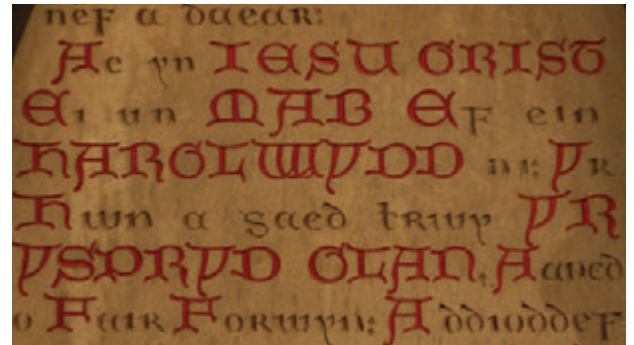 nef a daear:
Ac yn IESU GRIST
Ei un MAB EF ein
HARGLWYDD ni: Yr
Hwn a gaed trwy YR
YSPRYD GLAN, Aaned
o Fair Forwyn: A ddioddef